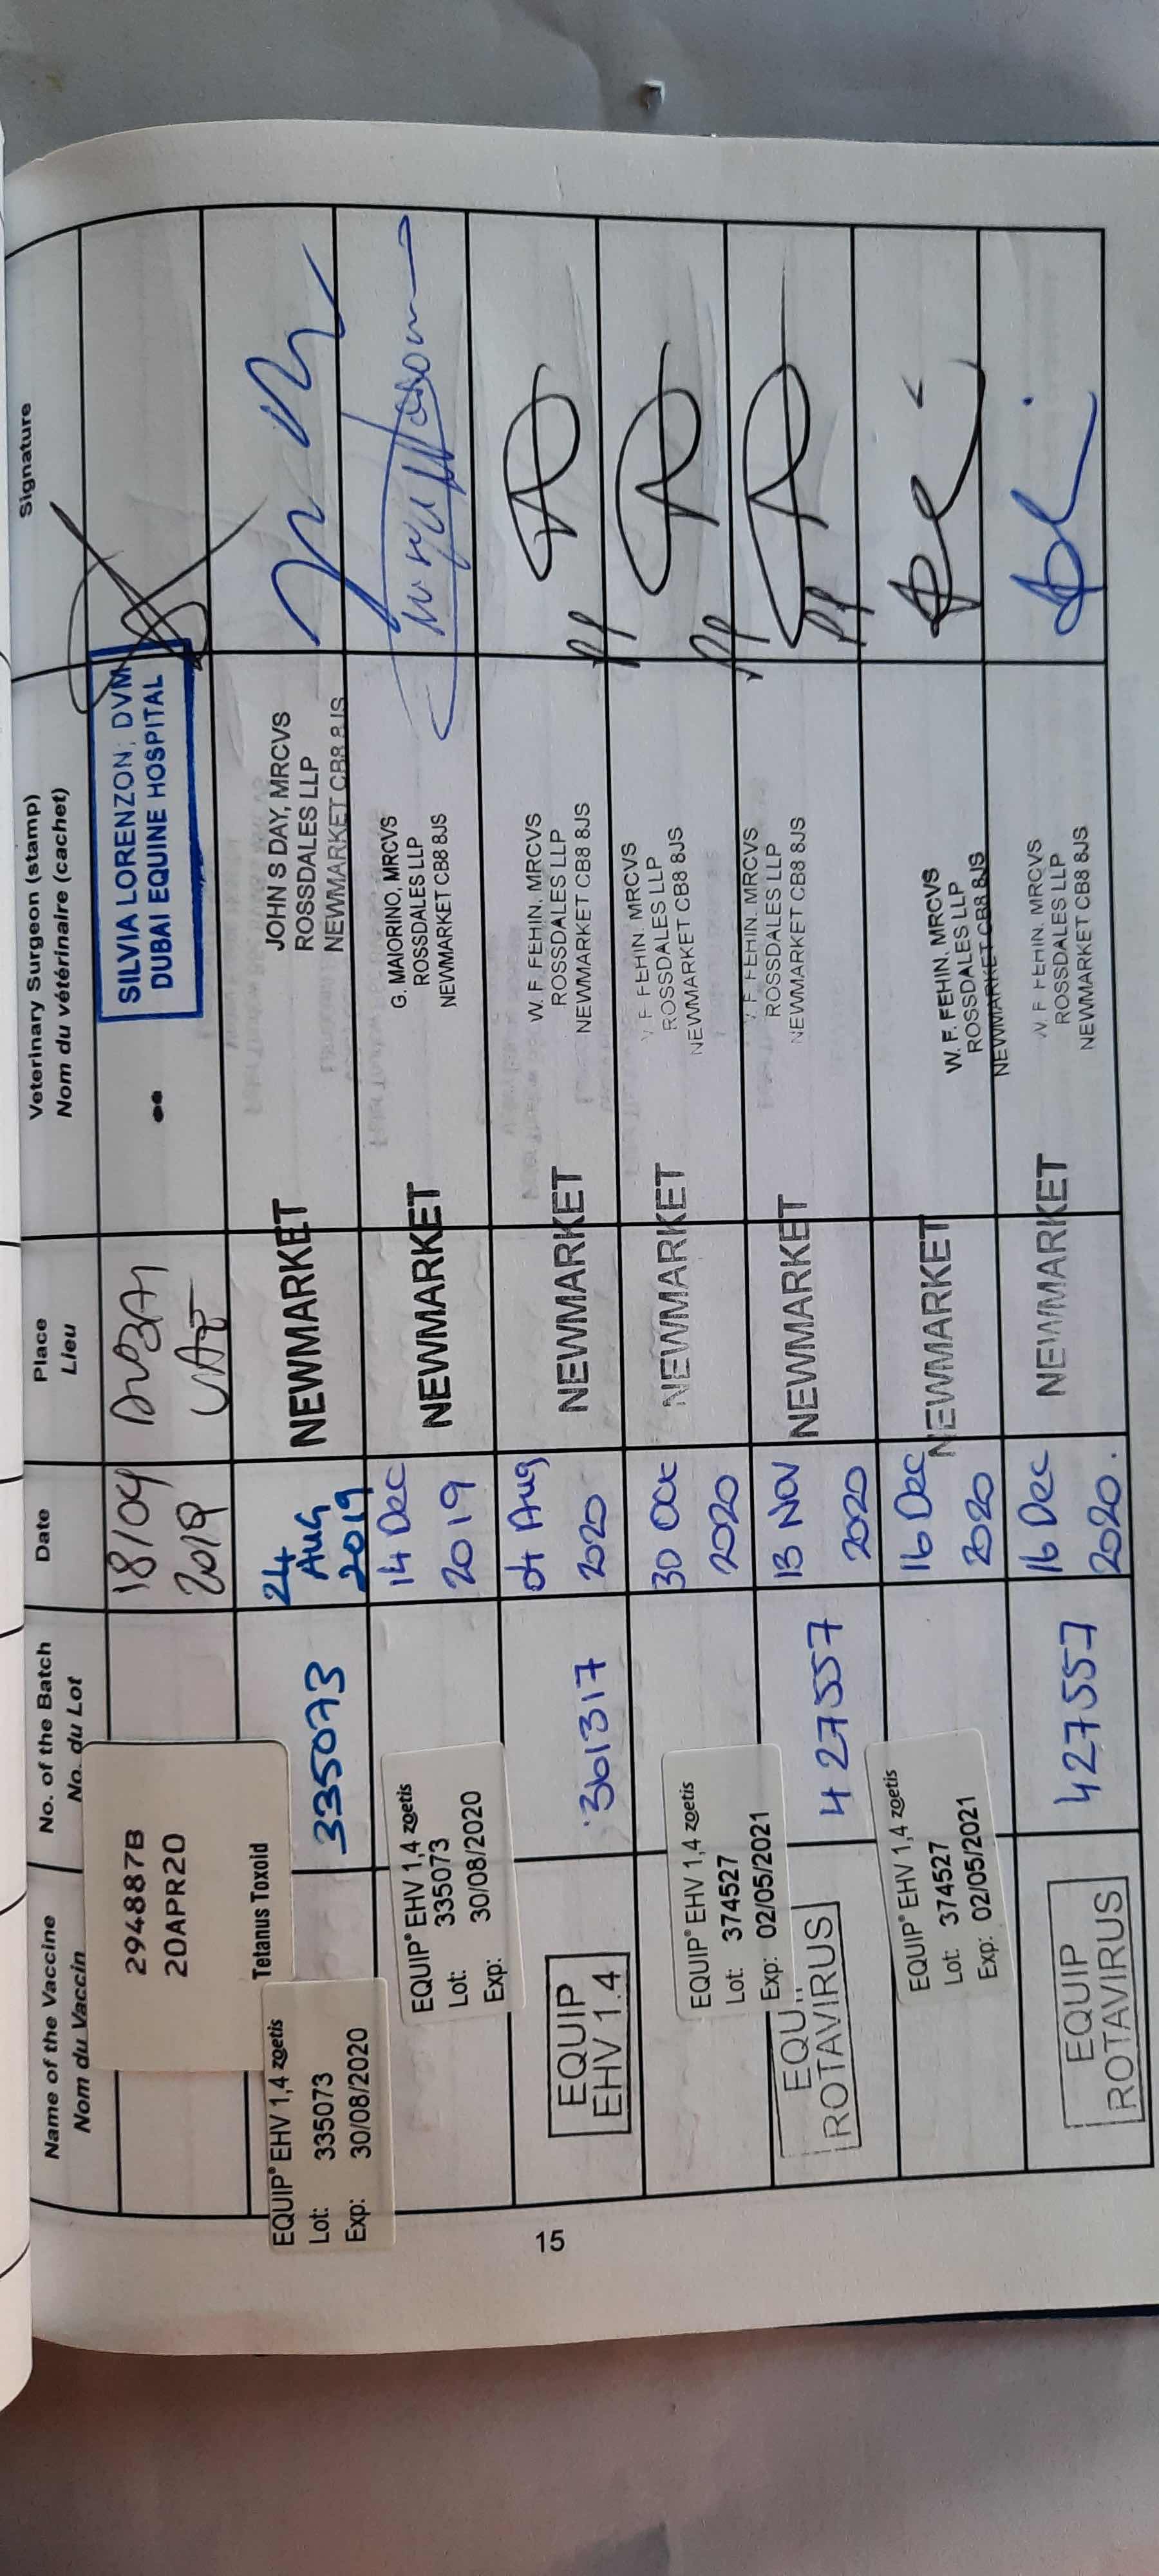 Name of the Vaccine
Nom du Vaccin
No. of the Batch
No. du Lot
Date
Place
Lieu
Veterinary Surgeon (stamp)
Nom du vétérinaire (cachet)
Signature
294887B
20APR20
Tetanus Toxoid
18/04
2019
DUBAI
UAE
SILVIA LORENZON; DVM
DUBAI EQUINE HOSPITAL
EQUIP® EHV 1,4 zoetis
Lot: 335073
Exp: 30/08/2020
335073
24
Aug
2019
NEWMARKET
JOHN S DAY, MRCVS
ROSSDALES LLP
NEWMARKET CB8 8JS
EQUIP® EHV 1,4 zoetis
Lot: 335073
Exp: 30/08/2020
14 Dec
2019
NEWMARKET
G. MAIORINO, MRCVS
ROSSDALES LLP
NEWMARKET CB8 8JS
EQUIP
EHV 1.4
361317
04 Aug
2020
NEWMARKET
W. F. FEHIN. MRCVS
ROSSDALES LLP
NEWMARKET CB8 8JS
pp
EQUIP® EHV 1,4 zoetis
Lot: 374527
Exp: 02/05/2021
30 Oct
2020
NEWMARKET
F FEHIN. MRCVS
ROSSDALES LLP
NEWMARKET CB8 8JS
pp
EQUIP
ROTAVIRUS
427557
13 Nov
2020
NEWMARKET
F FEHIN. MRCVS
ROSSDALES LLP
NEWMARKET CB8 8JS
pp
EQUIP® EHV 1,4 zoetis
Lot: 374527
Exp: 02/05/2021
16 Dec
2020
NEWMARKET
W. F. FEHIN. MRCVS
ROSSDALES LLP
NEWMARKET CB8 8JS
EQUIP
ROTAVIRUS
427557
16 Dec
2020.
NEWMARKET
W. F FEHIN. MRCVS
ROSSDALES LLP
NEWMARKET CB8 8JS
15